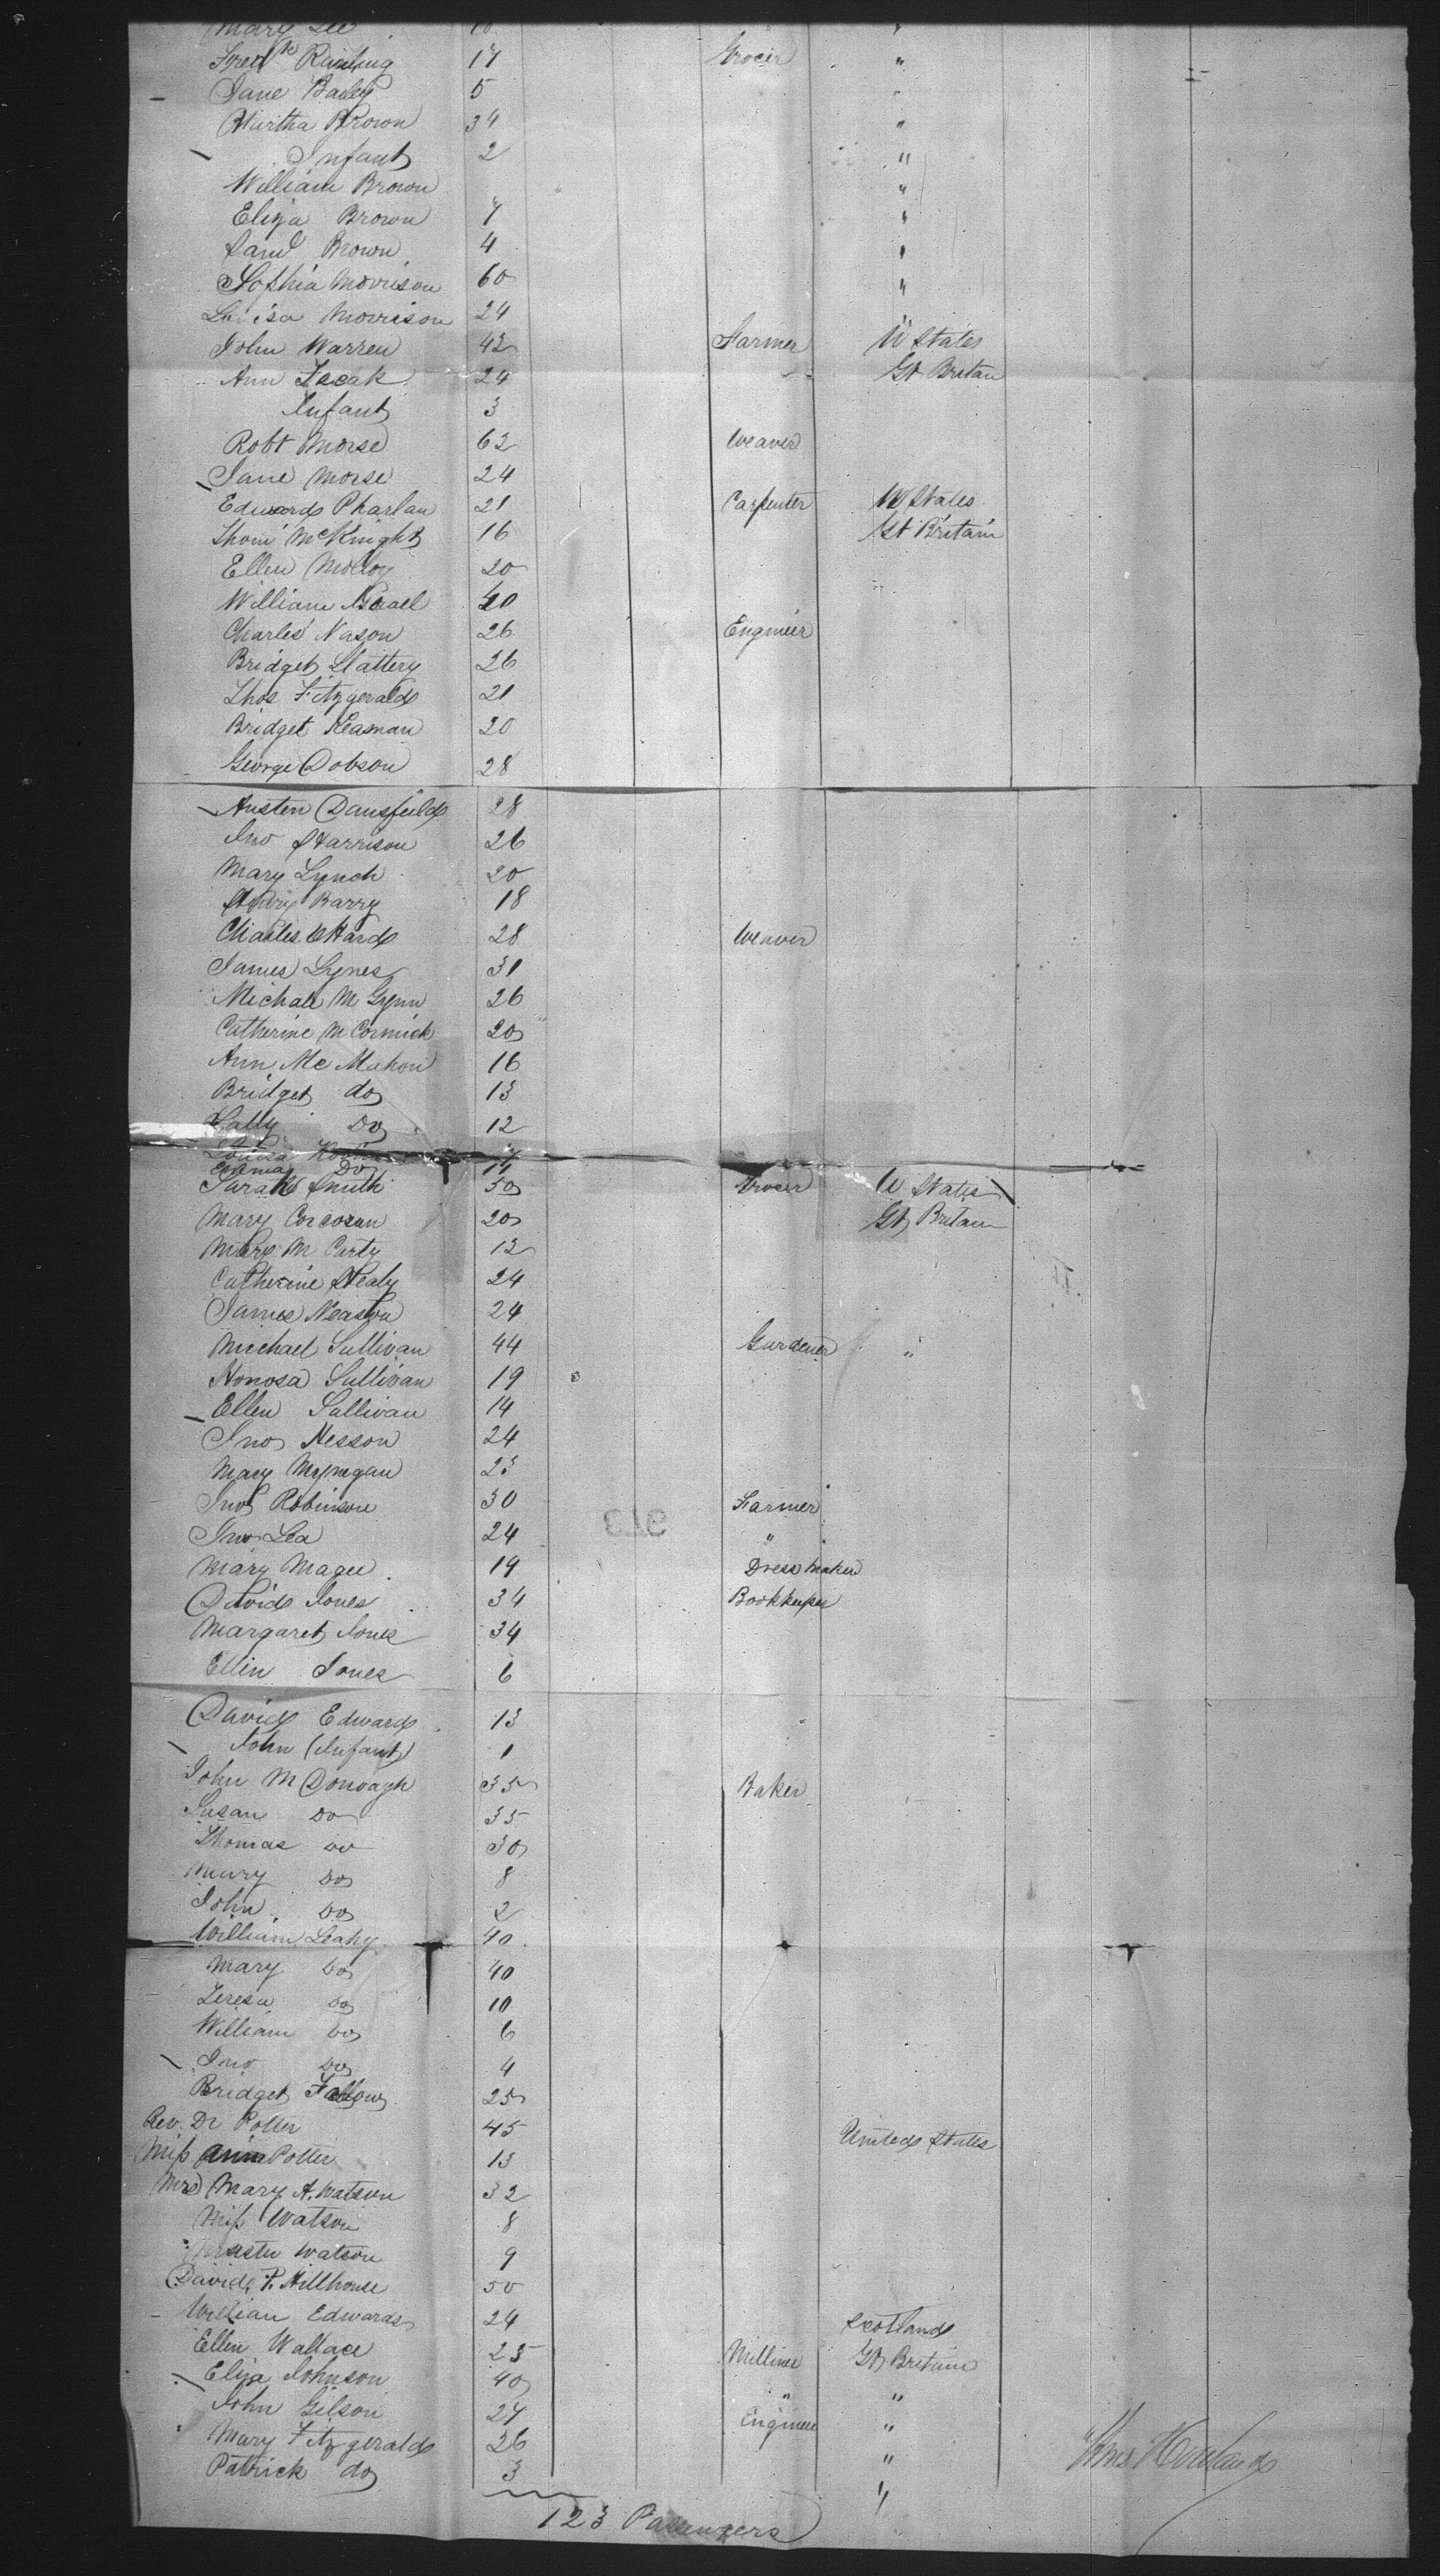 Mary Lee
Fred^k 17 Grocer "
Jane Baily 5 "
Martha Brown 34 "
Infant 2 "
William Brown "
Eliza Brown 7 "
Saml Brown 4 "
Sophia Morrison 60 "
Louisa Morrison 24
John Warren 42 Farmer U States
Ann 24 Gt Britan
Infant 3
Robt Morse 62 Weaver
Jane Morse 24
Edward Pharlan 21 Carpenter U States
Thom McKnight 16 Gt Britain
Ellen Molloy 20
William Israel
Charles Nason 26 Engineer
Bridget Slattery 26
Thos Fitzgerald 21
Bridget 20
George Dobson 28
Austen Dansfeild 28
Jno Harrison 26
Mary Lynch 20
Barry 18
Charles Ward 28 Weaver
James Lynes 31
Michael M Gynn 26
Catherine M Cormick 20
Ann Mc Mahon 16
Bridget do 13
Sally Do 12
Louisa
Emma Do 11
Sarah Smith 50 Grocer U States
Mary Corcoran 20 Gt Britain
Mary M Carty 12
Catherine Healy 24
James Neason 24
Michael Sullivan 44 Gardener "
Honosa Sullivan 19
Ellen Sullivan 14
Jno Nesson 24
Mary 23
Jno Robinson 30 Farmer
Jno Lea 24 "
Mary Magee 19 Dress maker
David Jones 34 Bookkeeper
Margaret Jones 34
Ellin Jones 6
David Edward 13
John (Infant) 1
John M Donoagh 35 Baker
Susan Do 35
Thomas Do 30
Mary Do 8
John Do 2
William Leahy 40
Mary Do 40
Teresa Do 10
William Do 6
Jno Do 4
Bridget Fallow 25
Rev. Dr Potter 45 United States
Miss Ann Potter 13
Mrs Mary A. Watson 32
Miss Watson 8
Master Watson 9
David P. Hillhouse 50
William Edwards 24 Scotland
Ellen Wallace 25 Milliner Gt Britain
Eliza Johnson 40 " "
John Gilson 27 Engineer "
Mary Fitzgerald 26 "
Patrick do 3 "
123 Passengers